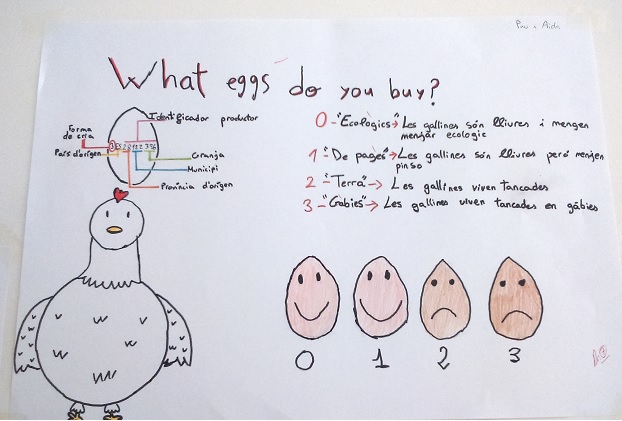 Pau i Aida
What eggs do you buy?
Identificador productor
Forma
de cria
País d'origen
Granja
Municipi
Província d'origen
0-"Ecològics"→ Les gallines són lliures i mengen
menjar ecologic
1-"De pagès"→ Les gallines són lliures però menjen
pinso
2-"Terra"→ Les gallines viven tancades
3-"Gàbies"→ Les gallines viven tancades en gàbies
0 1 2 3